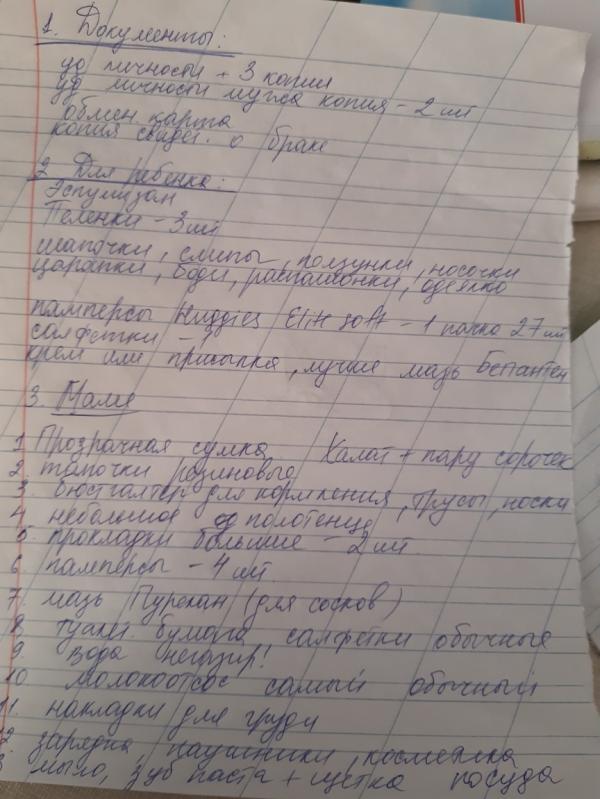 1. Документы:
уд личности + 3 копии
уд личности мужа копия - 2 шт
обмен карта
копия свидет. о браке
2 Для ребенка:
Эспумизан
Пеленки - 3 шт
шапочки, слипы, ползунки, носочки
царапки, боди, распашонки, одеялко
памперсы Huggies Elit soft - 1 пачка 27 шт
салфетки - 1
крем или присыпка, лучше мазь Бепантен
3. Маме
1 Прозрачная сумка Халат + пару сорочек
2 тапочки резиновые
3. бюстгалтер для кормления, трусы, носки
4 небольшое полотенце
5. прокладки большие - 2 шт.
6 памперсы - 4 шт.
7. мазь Пурелан (для сосков)
8 туалет. бумага салфетки обычные
9 вода негазир!
10 молокоотсос самый обычный
11. накладки для груди
2. зарядка, наушники, косметика
3 мыло, зуб паста + щетка посуда